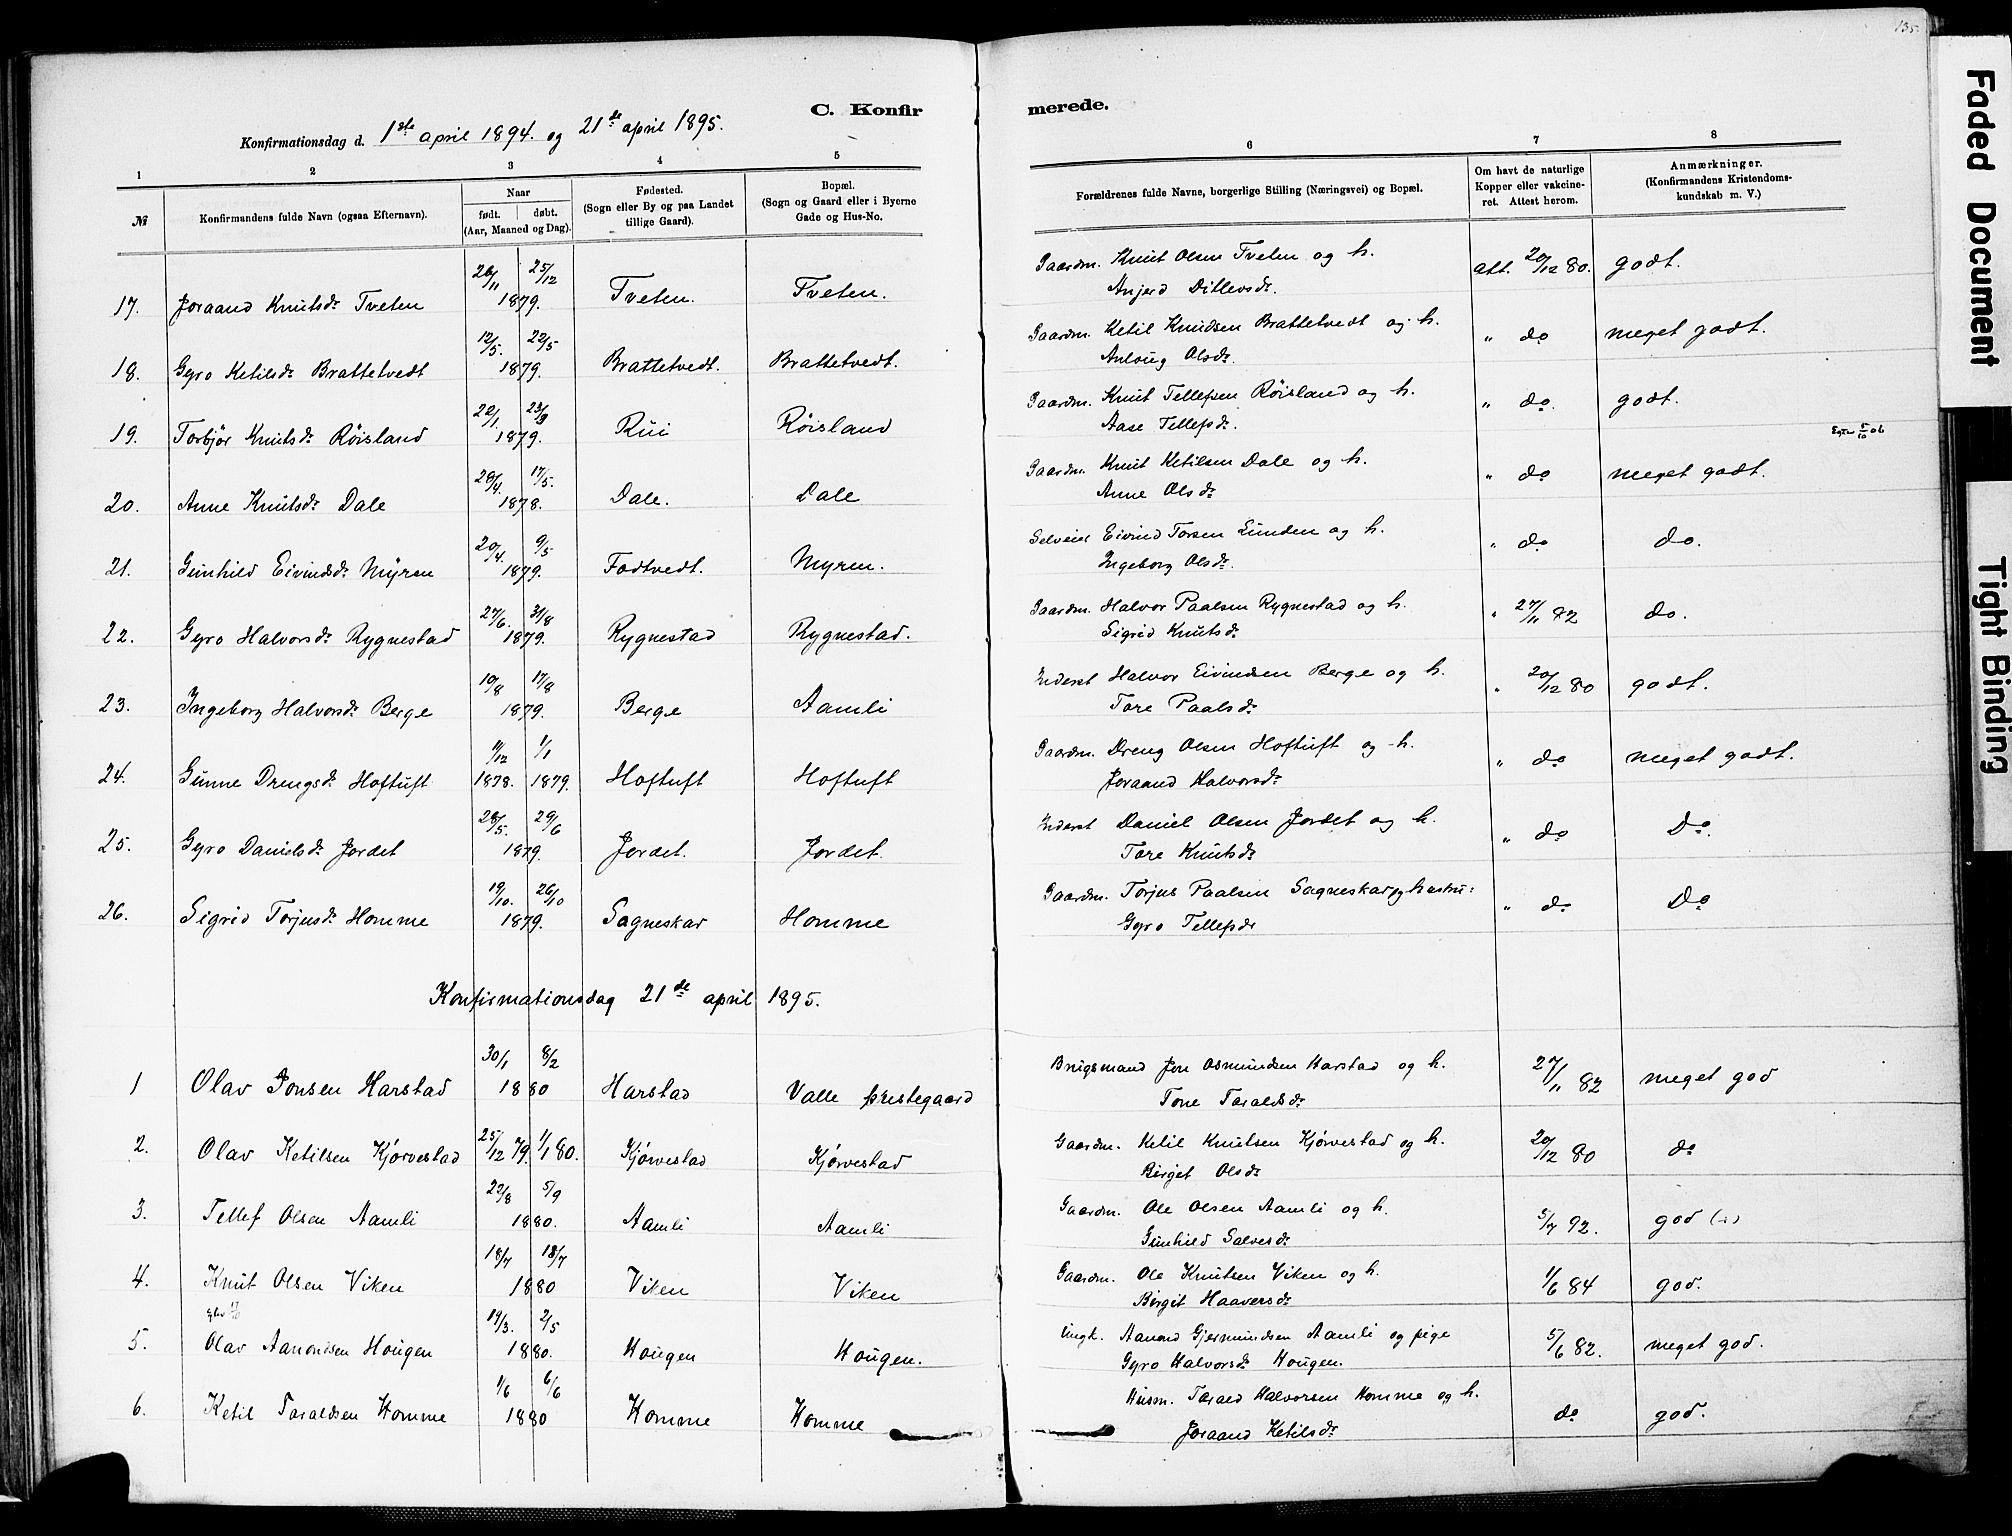 135.
C. Konfir merede.
Konfirmationsdag d. 1ste april 1894. og 21de april 1895.
1 2 3 4 5 6 7 8
№
Konfirmandens fulde Navn (ogsaa Efternavn).
Naar
født. døbt.
(Aar, Maaned og Dag).
Fødested.
(Sogn eller By og paa Landet
tillige Gaard).
Bopæl.
(Sogn og Gaard eller i Byerne
Gade og Hus-No.
Forældrenes fulde Navne, borgerlige Stilling (Næringsvei) og Bopæl.
Om havt de naturlige
Kopper eller vakcine-
ret. Attest herom.
Anmærkninger.
(Konfirmandens Kristendoms-
kundskab m. V.)
17. Joraand Knutsdr Tveten 26/11 25/12 1879. Tveten. Tveten. Gaardm. Knut Olsen Tveten og h. att. 20/12 80. godt.
Anjerd Ditlevsdr.
18. Gyro Ketilsdr Brattetvedt 12/5. 22/5 1879. Brattetvedt. Brattetvedt. Gaardm. Ketil Knudsen Brattetvedt og h. " do meget godt.
Anloug Olsdr.
19. Torbjør Knutsdr Røisland 22/1. 23/3 1879. Rui Røisland Gaardm. Knut Tellefsen Røisland og h. " do. godt.
Aase Tellefsdr.
20. Anne Knutsdr Dale 28/4. 17/5. 1878. Dale. Dale Gaardm. Knut Ketilsen Dale og h. " do meget godt.
Anne Olsdr
21. Gunhild Eivindsdr Myren 20/4. 9/5 1879. Fodtvedt. Myren. Selveier Eivind Torsen Lunden og h. " do do.
Ingeborg Olsdr.
22. Gyro Halvorsdr Rygnestad 27/6. 31/8 1879. Rygnestad Rygnestad. Gaardm. Halvor Paalsen Rygnestad og h. " 27/11 82 do.
Sigrid Knutsdr
23. Ingeborg Halvorsdr Berge 10/8 17/8 1879. Berge Aamli Inderst Halvor Eivindsen Berge og h. " 20/12 80 godt.
Tore Paalsdr
24. Gunne Drengsdr Hoftuft 11/12 1/1 1878. 1879. Hoftuft Hoftuft Gaardm. Dreng Olsen Hoftuft og h. " do meget godt.
Joraand Halvorsdr
25. Gyro Danielsdr Jordet 28/5. 29/6 1879. Jordet. Jordet. Inderst Daniel Olsen Jordet og h. " do Do.
Tore Knutsdr
26. Sigrid Torjusdr Homme 19/10. 26/10 1879. Sagneskar Homme Gaardm. Torjus Paalsen Sagneskar og hustru: " do Do
Gyro Tellefsdr
Konfirmationsdag 21de april 1895.
1 Olav Jonsen Harstad 30/1 8/2 1880 Harstad Valle prestegaard Brugsmand Jon Osmundsen Harstad og h. 27/11 82 meget god
Tone Taraldsdr
2. Olav Ketilsen Kjørvestad 25/12 79. 1/1 80. Kjørvestad Kjørvestad Gaardm. Ketil Knutsen Kjørvestad og h. 20/12 80 do
Birget Olsdr
3. Tellef Olsen Aamli 22/8 5/9 1880. Aamli Aamli Gaardm. Ole Olsen Aamli og h. 5/7 92. god (÷)
Gunhild Salvesdr
4. Knut Olsen Viken 18/7 18/7 1880 Viken Viken Gaardm. Ole Knutsen Viken og h. 1/6 84 god.
Birgit Haaversdr
5. Olav Aanonsen Hougen 14/3. 2/5 1880. Hougen Hougen. Ungk. Aanond Gjermundsen Aamli og pige 5/6 82. meget god.
Gyro Halvorsdr Hougen.
6. Ketil Taraldsen Homme 1/6 6/6 1880 Homme Homme Husm. Tarald Halvorsen Homme og h. do god.
Joraand Ketilsdr
Faded Document
Tight Binding